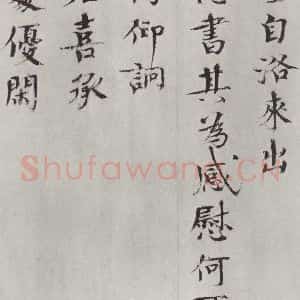 自洛來出
書其為感慰何
仰詗
喜承
優閑
Shufawang.CN